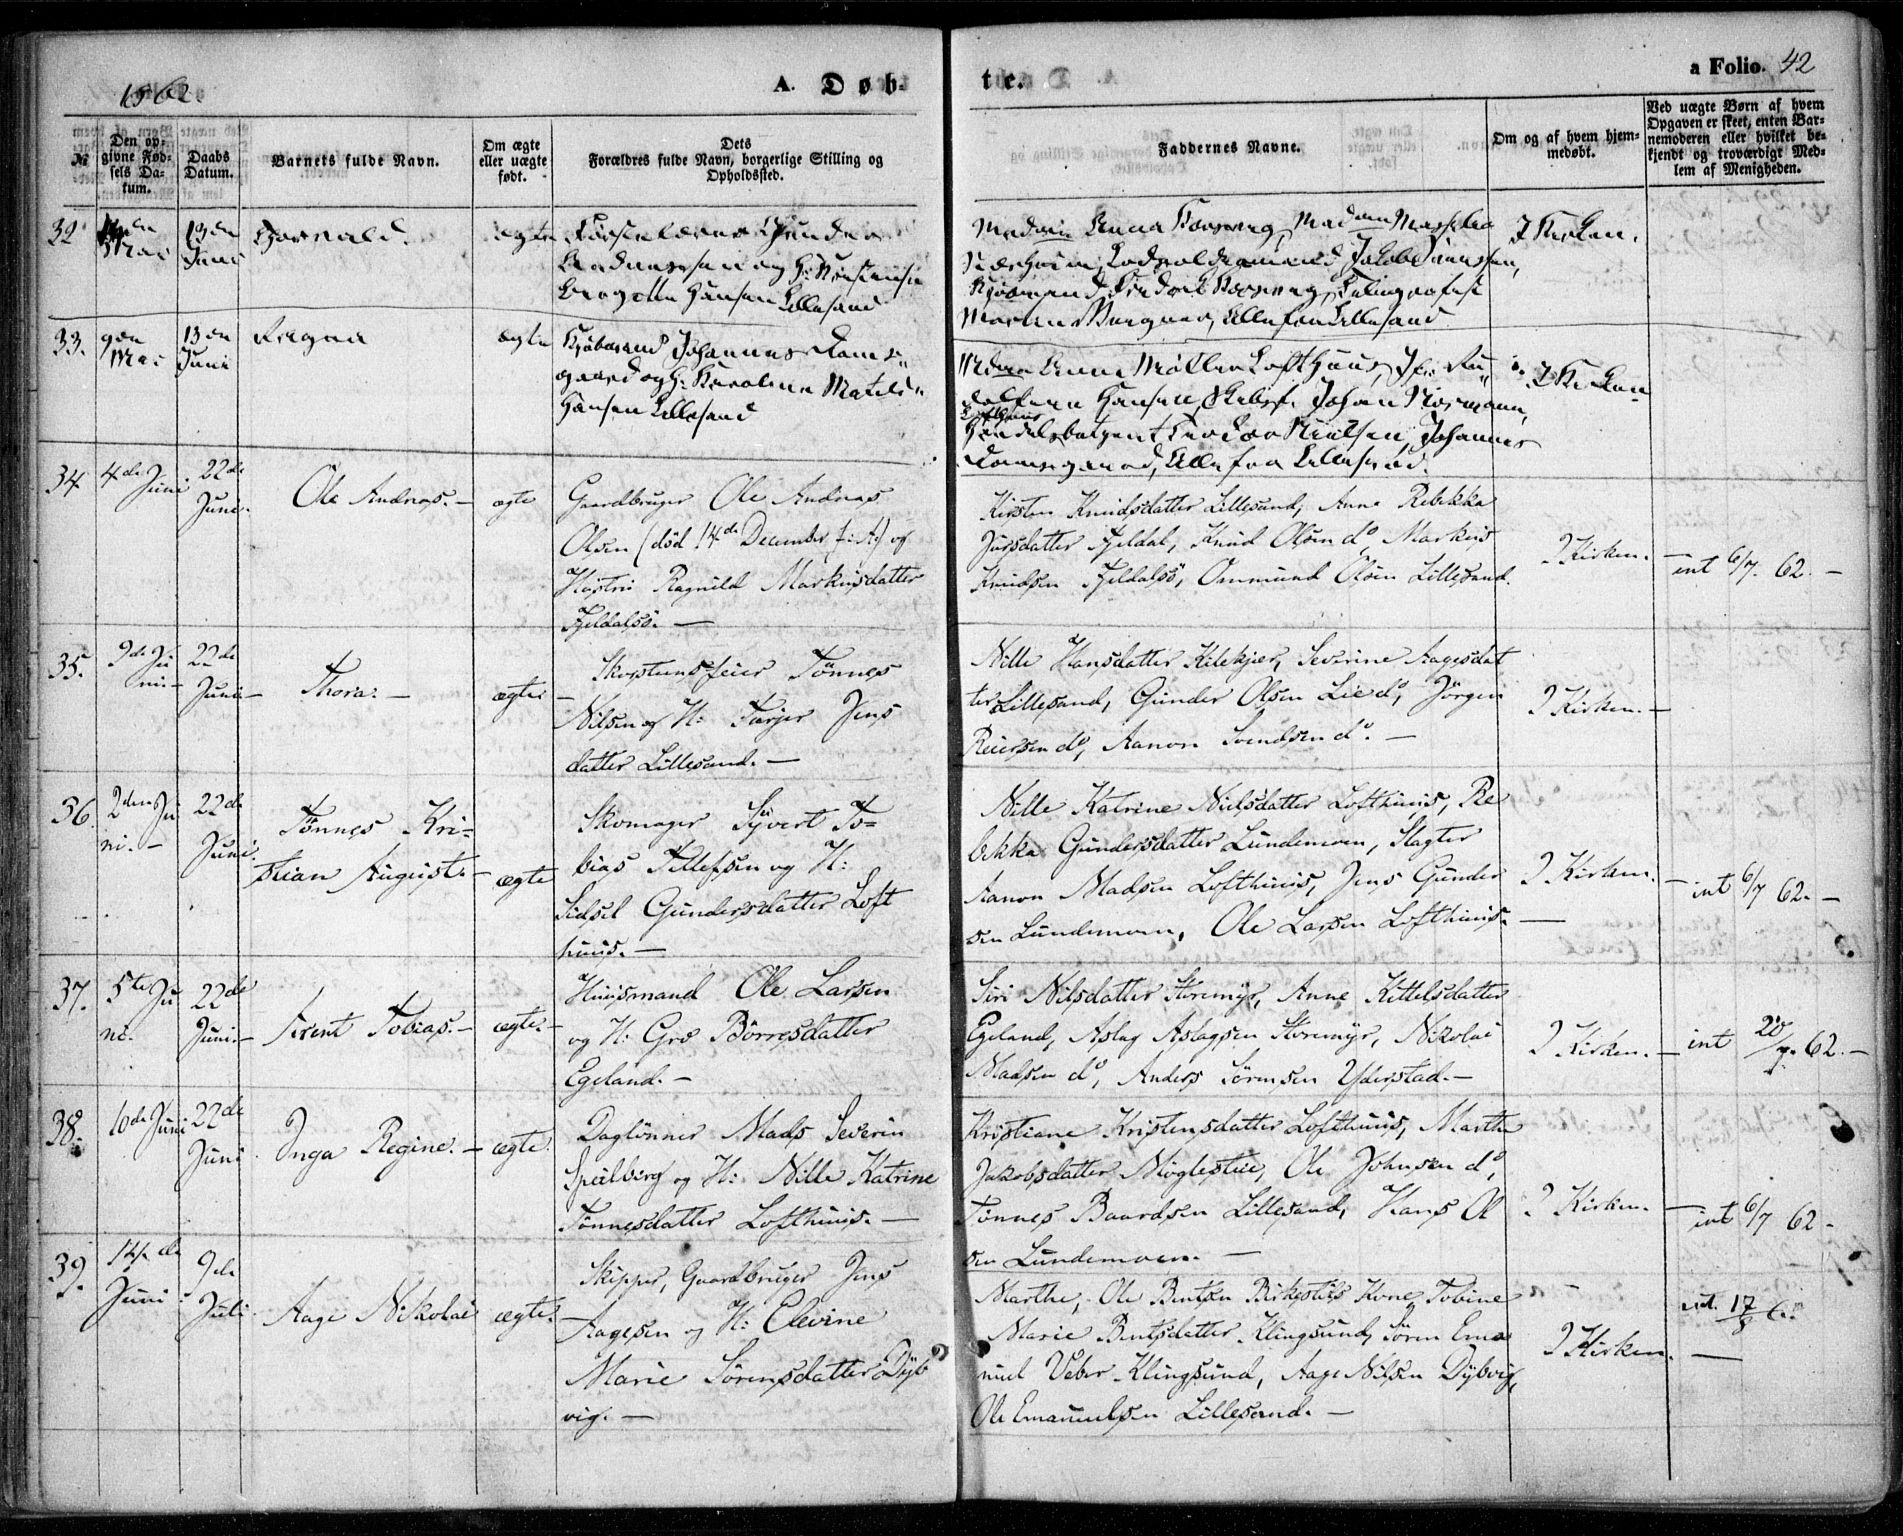 1862.
A. Døb-
te.
a Folio. 42
№
Den opgivne Fødsels Datum.
Daabs Datum.
Barnets fulde Navn.
Om ægte eller uægte født.
Dets Forældres fulde Navn, borgerlige Stilling og Opholdssted.
Faddernes Navne.
Om og af hvem hjemmedøbt.
Ved uægte Børn af hvem Opgaven er skeet, enten Barnemoderen eller hvilket bekjendt og troværdigt Medlem af Menigheden.
32
Mai
13de Juni
ægte
og H: Kirstensie
Hansen Lillesand
Madam Anna
Jakob
Alle fra Lillesand
I Kirken.
33.
9de Mai
13de Juni
Ragna
ægte
Kjøbmand Johannes Dams-
gaard og H: Karoline Matilde
Hansen Lillesand
Madam Anna Møller Lofthuus, Jfr: Ru-
dolfine Hansen, Skibsf. Johan Normann,
Lofthuus
Nielsen, Johannes
Damsgaard, Alle fra Lillesand.
I Kirken
34
4de Juni
22de Juni.
Ole Andreas. -
ægte
Gaardbruger Ole Andreas
Olsen (død 14de December f: A:) og
Hustru Ragnild Markusdatter
Fjeldalsø. -
Kirsten Knudsdatter Lillesand, Anne Rebekka
Jursdatter Fjeldal, Knud Olsen do Markus
Knudsen Fjeldalsø, Ommund Olsen Lillesand.
I Kirken. -
int 6/7. 62. -
35.
9de Ju
ni. -
22de
Juni -
Thora. -
ægte
Skorstensfeier Tønnes
Nilsen og H: Tarjer Jens
datter Lillesand. -
Nille Hansdatter Kilekjær, Severine Aagesdat
ter Lillesand, Gunder Olsen Lie do, Jörgen
Reiersen do, Aanon Svendsen do. -
I Kirken. -
36.
2den Ju
ni. -
22de
Juni.
Tønnes Kri-
stian August. -
ægte
Skomager Syvert To-
bias Tellefsen og H:
Sidsel Gundersdatter Loft
huus. -
Nille Katrine Nielsdatter Lofthuus, Re
bekka Gundersdatter Lundemoen, Slagter
Aanon Madsen Lofthuus, Jens Gunder
sen Lundemoen, Ole Larsen Lofthuus. -
I Kirken. -
int 6/7 62. -
37.
5te Ju
ni.
22de
Juni. -
Terent Tobias. -
ægte. -
Huusmand Ole Larsen
og H: Gro Börresdatter
Egeland. -
Siri Nilsdatter Storemyr, Anne Kittelsdatter
Egeland, Aslag Aslagsen Storemyr, Nikolai
Madsen do, Anders Sörensen Yderstad. -
I Kirken. -
int 20/7. 62. -
38.
10de Juni
22de
Juni.
Inga Regine. -
ægte.
Daglönner Mads Severin
Speilberg og H: Nille Katrine
Tønnesdatter Lofthuus. -
Kristiane Kristensdatter Lofthuus, Marthe
Jakobsdatter Møglestue, Ole Johnsen do,
Tønnes Baardsen Lillesand, Hans Ol
sen Lundemoen. -
I Kirken. -
int 6/7 62 -
39.
14de
Juni
9de
Juli.
Aage Nikolai
ægte. -
Skipper, Gaardbruger Jens
Aagesen og H: Elevine
Marie Sörensdatter Dyb
vig. -
Marthe, Ole Bentsen Birkestøls Kone, Tobine
Marie Bentsdatter Klingsund, Sören Ema
nuel Veber Klingsund, Aage Nilsen Dybvig,
Ole Emanuelsen Lillesand. -
I Kirken. -
int. 17/8 62